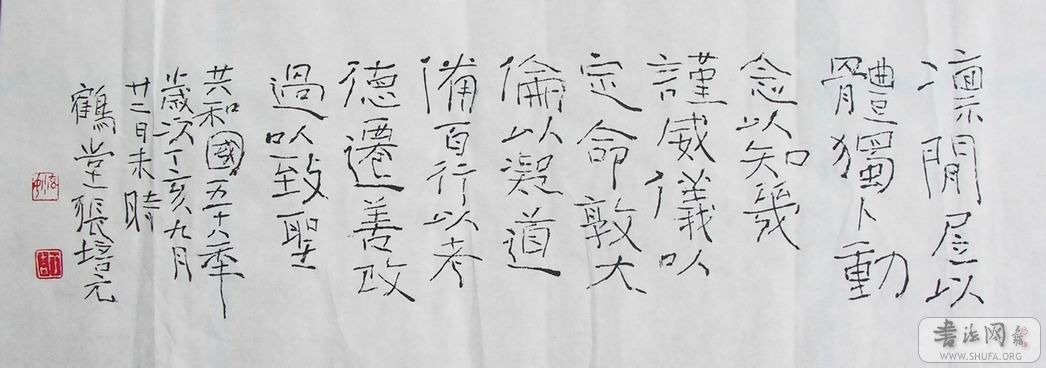 凛閒居以
體獨卜動
念以知幾
謹威儀以
定命敦大
倫以凝道
備百行以考
德遷善改
過以致聖
共和國五十八年
歲次丁亥九月
廿二日未時
鶴堂張培元
書法网
WWW.SHUFA.ORG